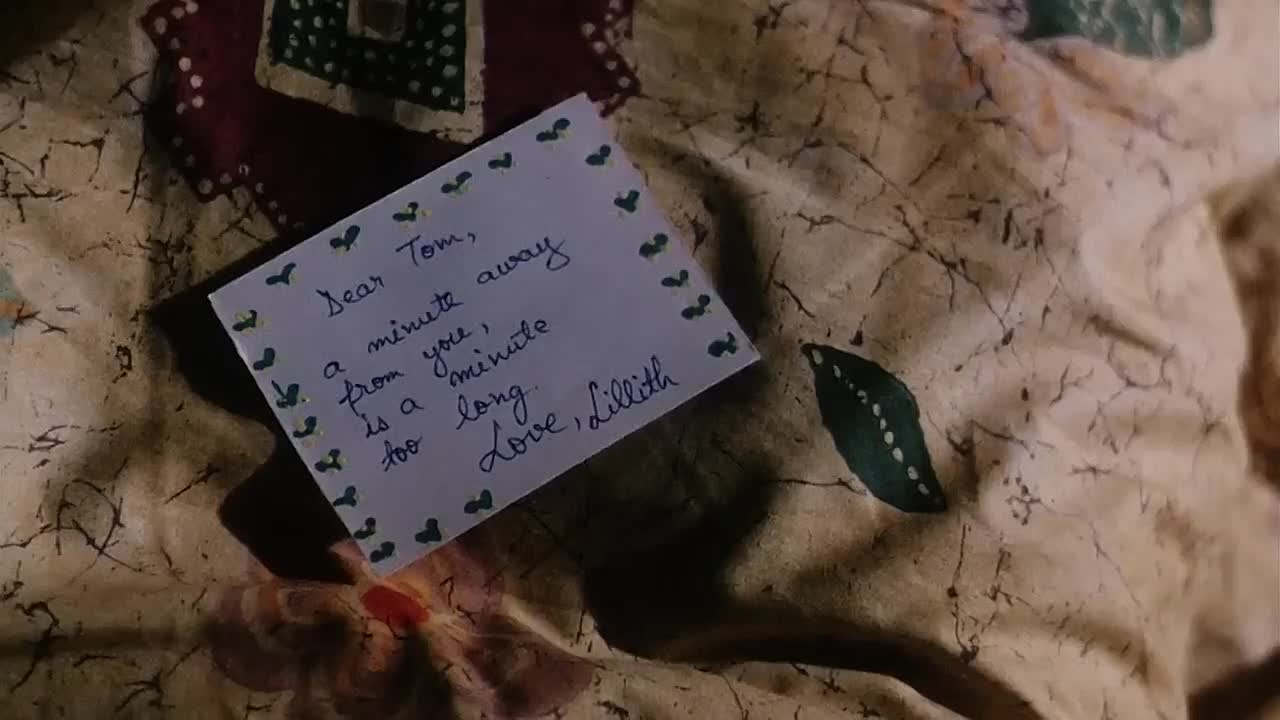 Dear Tom,
a minute away
from you,
is a minute
too long.
Love, Lillith